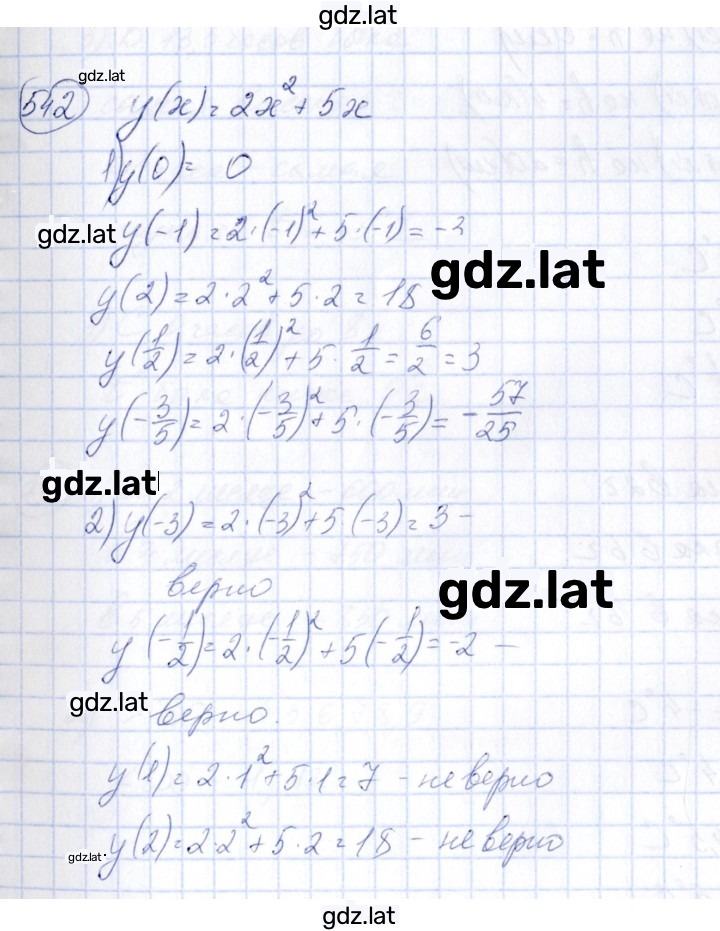 gdz.lat
gdz.lat
542 y(x) = 2x² + 5x
1) y(0) = 0
gdz.lat y(-1) = 2·(-1)² + 5·(-1) = -3
gdz.lat
y(2) = 2·2² + 5·2 = 18
y(1/2) = 2·(1/2)² + 5·1/2 = 6/2 = 3
y(-3/5) = 2·(-3/5)² + 5·(-3/5) = -57/25
gdz.lat
2) y(-3) = 2·(-3)² + 5·(-3) = 3 -
верно
gdz.lat
y(-1/2) = 2·(-1/2)² + 5(-1/2) = -2 -
gdz.lat
верно.
y(1) = 2·1² + 5·1 = 7 - не верно
gdz.lat y(2) = 2·2² + 5·2 = 18 - не верно
gdz.lat